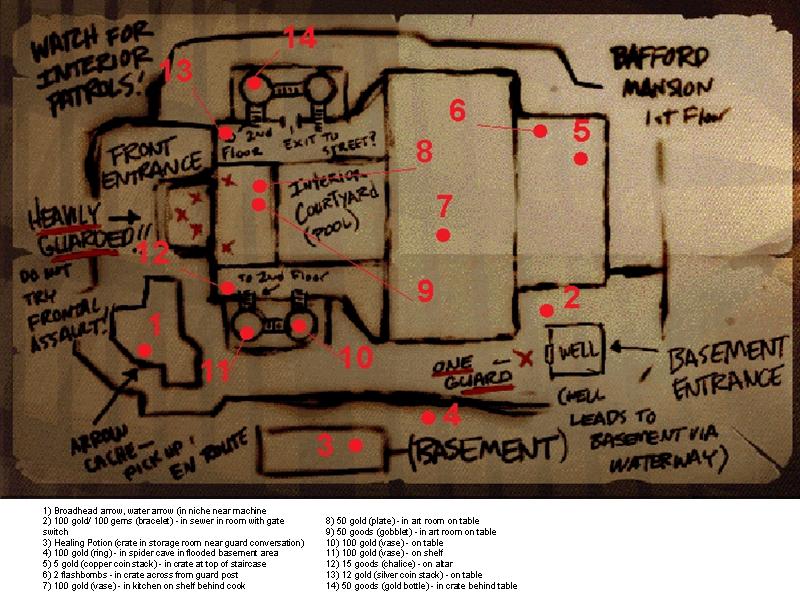 WATCH FOR
INTERIOR
PATROLS!
14
13
BAFFORD
MANSION
1st Floor
TO 2ND
FLOOR
EXIT TO
STREET?
6
5
FRONT
ENTRANCE
8
INTERIOR
COURTYARD
(POOL)
7
HEAVILY
GUARDED!!
12
9
DO NOT
TRY
FRONTAL
ASSAULT!
TO 2nd Floor
2
1
11
10
ONE
GUARD
WELL
BASEMENT
ENTRANCE
4
(WELL
LEADS TO
BASEMENT VIA
WATERWAY)
ARROW
CACHE—
PICK UP!
EN ROUTE
3
(BASEMENT)
1) Broadhead arrow, water arrow (in niche near machine
2) 100 gold/ 100 gems (bracelet) - in sewer in room with gate
switch
3) Healing Potion (crate in storage room near guard conversation)
4) 100 gold (ring) - in spider cave in flooded basement area
5) 5 gold (copper coin stack) - in crate at top of staircase
6) 2 flashbombs - in crate across from guard post
7) 100 gold (vase) - in kitchen on shelf behind cook
8) 50 gold (plate) - in art room on table
9) 50 goods (gobblet) - in art room on table
10) 100 gold (vase) - on table
11) 100 gold (vase) - on shelf
12) 15 goods (chalice) - on altar
13) 12 gold (silver coin stack) - on table
14) 50 goods (gold bottle) - in crate behind table